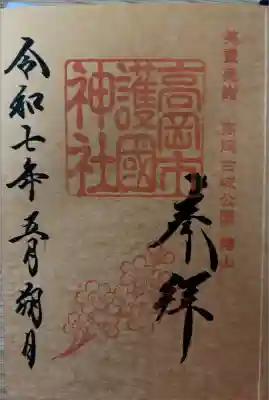 高岡古城公園
高岡市
護國
神社
奉拝
令和七年五月朔日